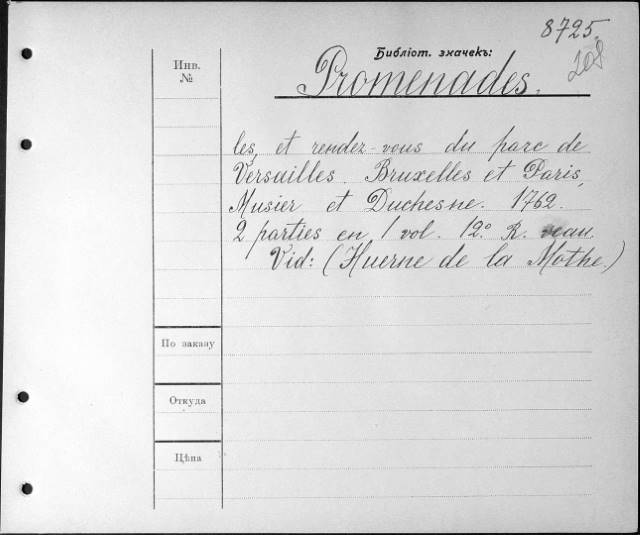 8725.
208
Библіот. значекъ:
Promenades.
Инв.
№
les, et rendez-vous du parc de
Versuilles. Bruxelles et Paris,
Musier et Duchesne. 1762.
2 parties en 1 vol. 12.º R. veau.
Vid: (Huerne de la Mothe.)
По заказу
Откуда
Цѣна